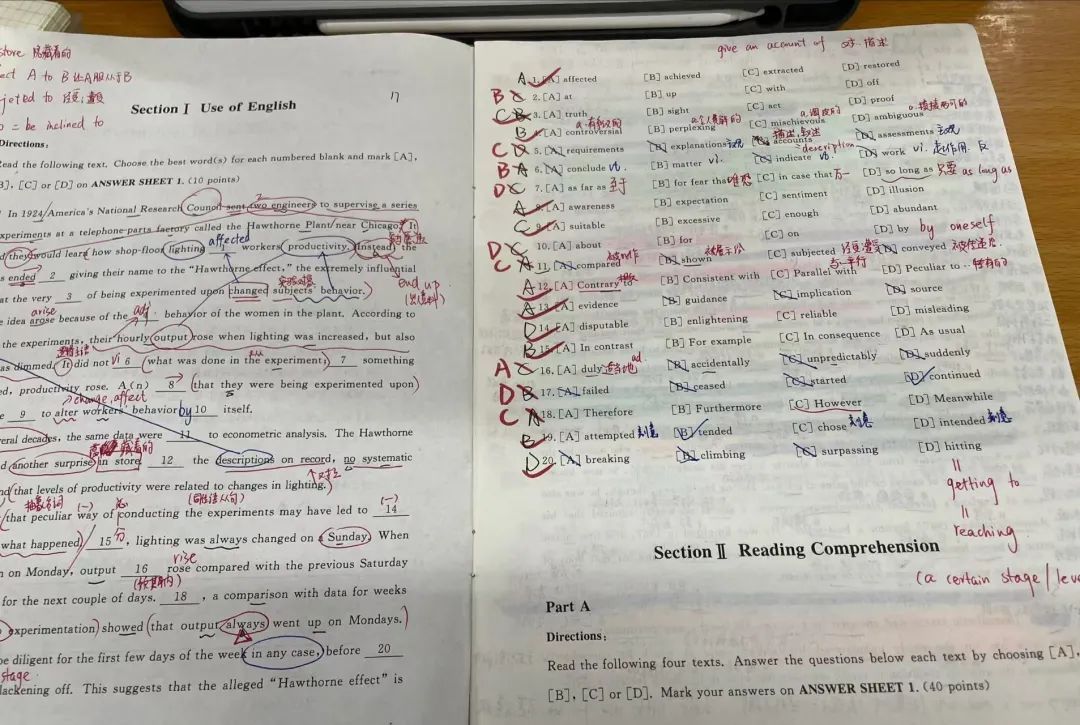 store 隐藏着的
ect A to B 让A服从于B
jected to 经受;遭受
o = be inclined to
Section Ⅰ Use of English
17
Directions:
Read the following text. Choose the best word(s) for each numbered blank and mark [A],
B], [C] or [D] on ANSWER SHEET 1. (10 points)
In 1924, America's National Research Council sent two engineers to supervise a series
xperiments at a telephone-parts factory called the Hawthorne Plant near Chicago. It
they would learn how shop-floor lighting affected workers' productivity. Instead, the
s ended 2 giving their name to the "Hawthorne effect," the extremely influential
end up
at the very 3 of being experimented upon changed subjects' behavior.
arise adj
e idea arose because of the behavior of the women in the plant. According to
the experiments, their hourly output rose when lighting was increased, but also
as dimmed. It did not vi 6 what was done in the experiment; 7 something
ed, productivity rose. A(n) 8 that they were being experimented upon
change, affect
e 9 to alter workers' behavior by 10 itself.
eral decades, the same data were 11 to econometric analysis. The Hawthorne
隐藏着的
d another surprise in store. 12 the descriptions on record, no systematic
nd that levels of productivity were related to changes in lighting.
(同位语从句)
(一)
that peculiar way of conducting the experiments may have led to 14
what happened. 15 , lighting was always changed on a Sunday. When
rise
n on Monday, output 16 rose compared with the previous Saturday
for the next couple of days. 18 , a comparison with data for weeks
experimentation) showed that output always went up on Mondays.
be diligent for the first few days of the week in any case, before 20
stage
lackening off. This suggests that the alleged "Hawthorne effect" is
give an account of 对·描述
A 1. [A] affected [B] achieved [C] extracted [D] restored
B 2. [A] at [B] up [C] with [D] off
C 3. [A] truth [B] sight [C] act [D] proof
a.有争议的 a.调皮的
B 4. [A] controversial [B] perplexing [C] mischievous [D] ambiguous
描述,叙述
C 5. [A] requirements [B] explanations [C] accounts [D] assessments 主观
description
B 6. [A] conclude vt. [B] matter vi. [C] indicate vt. [D] work vi. 起作用
D 7. [A] as far as 至于 [B] for fear that 唯恐 [C] in case that 万一 [D] so long as 只要 as long as
A 8. [A] awareness [B] expectation [C] sentiment [D] illusion
C 9. [A] suitable [B] excessive [C] enough [D] abundant
D 10. [A] about [B] for [C] on [D] by by oneself
C 11. [A] compared [B] shown [C] subjected 经受;遭受 [D] conveyed
与…平行
A 12. [A] Contrary to [B] Consistent with [C] Parallel with [D] Peculiar to 特有的
A 13. [A] evidence [B] guidance [C] implication [D] source
D 14. [A] disputable [B] enlightening [C] reliable [D] misleading
B 15. [A] In contrast [B] For example [C] In consequence [D] As usual
A 16. [A] duly 适当地 ad. [B] accidently [C] unpredictably [D] suddenly
D 17. [A] failed [B] ceased [C] started [D] continued
C 18. [A] Therefore [B] Furthermore [C] However [D] Meanwhile
B 19. [A] attempted 刻意 [B] tended [C] chose 刻意 [D] intended 刻意
D 20. [A] breaking [B] climbing [C] surpassing [D] hitting
getting to
reaching
(a certain stage / leve
Section Ⅱ Reading Comprehension
Part A
Directions:
Read the following four texts. Answer the questions below each text by choosing [A],
[B], [C] or [D]. Mark your answers on ANSWER SHEET 1. (40 points)